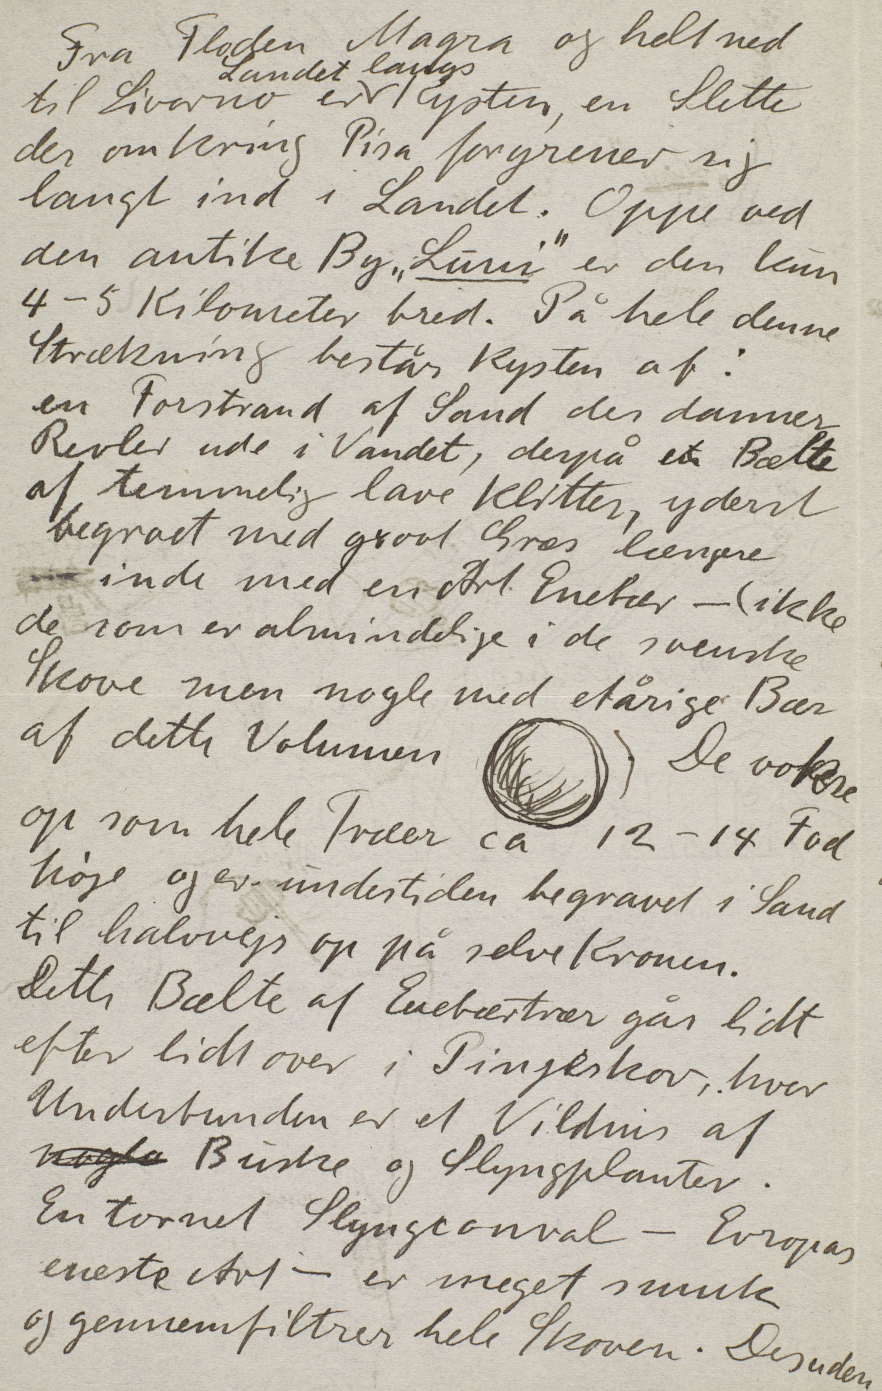 Fra Floden Magra og helt ned
Landet langs
til Livorno er Kysten, en Slette
der omkring Pisa forgrener sig
langt ind i Landet. Oppe ved
den antike By „Luni" er den kun
4-5 Kilometer bred. På hele denne
Strækning består Kysten af:
en Forstrand af Sand der danner
Revler ude i Vandet, derpå et Bælte
af temmelig lave Klitter, yderst
begroet med grovt Græs længere
inde med en Art Enebær — (ikke
de som er almindelige i de svenske
Skove men nogle med etårige Bær
af dette Volumen ) De voksre
op som hele Træer ca 12-14 Fod
høje og er undertiden begravet i Sand
til halvvejs op på selve Kronen.
Dette Bælte af Enebærtrær går lidt
efter lidt over i Pinjeskov, hvor
Underbunden er et Vildnis af
nogle Buske og Slyngplanter.
En tornet Slyngconval — Evropas
eneste Art — er meget smuk
og gennemfiltrer hele Skoven. Desuden